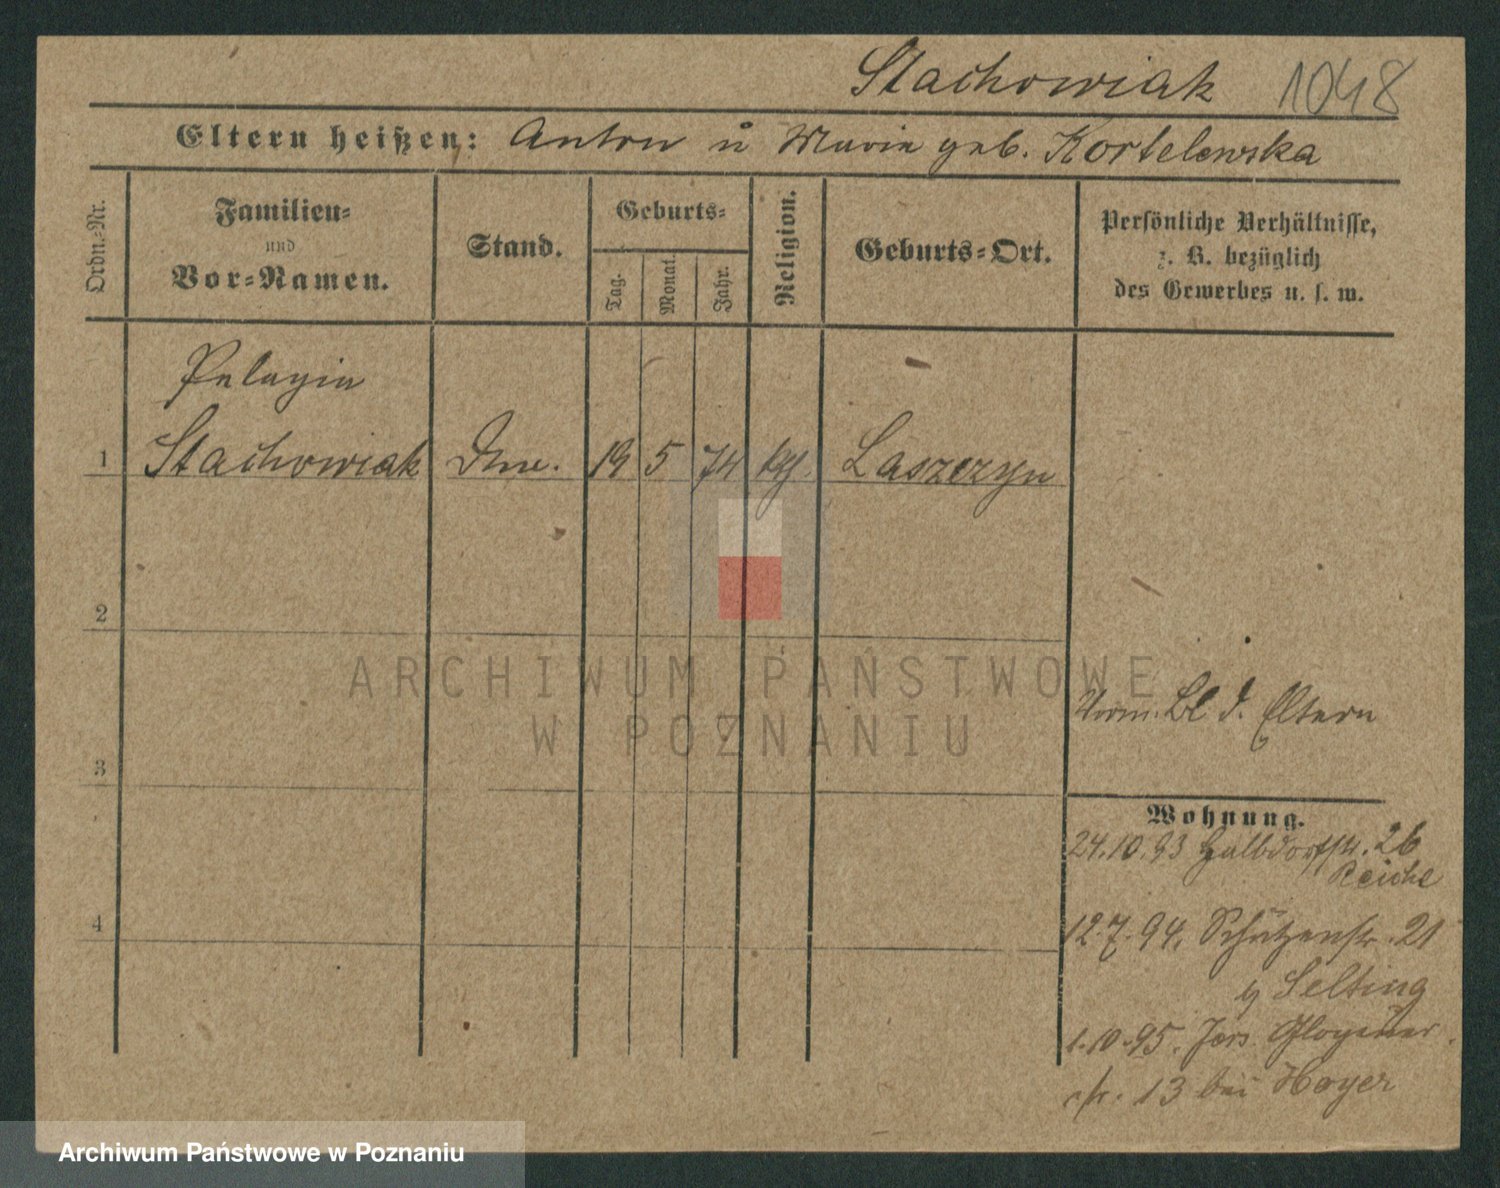 Stachowiak 1048
Eltern heißen: Anton u Marie geb. Kortelewska
Ordn.-Nr.
Familien-
und
Vor-Namen.
Stand.
Geburts-
Tag.
Monat.
Jahr.
Religion.
Geburts-Ort.
Persönliche Verhältnisse,
z. B. bezüglich
des Gewerbes u. s. w.
Pelagia
1 Stachowiak 19 5 74 kth. Laszczyn
2
ARCHIWUM PAŃSTWOWE
W POZNANIU
Bl d. Eltern
3
Wohnung.
24.10.93 Halbdorfstr. 26
Reiche
4
12.7.94. Schützenstr. 21
Selting
1.10.95. Glogauer
str. 13 bei Hoyer
Archiwum Państwowe w Poznaniu